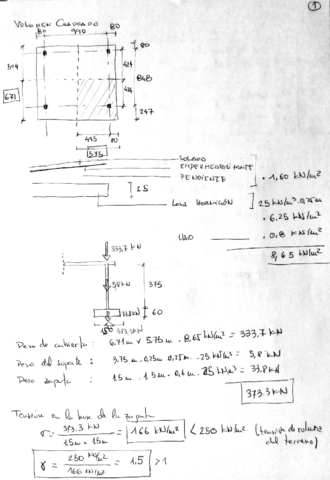 1
VOLUMEN CUADRADO
80 990 80
80
504 424
848
671 424
247
495 80
575
SOLADO
IMPERMEABILIZANTE
PENDIENTE
1,60 KN/m²
25
LOSA HORMIGÓN
25 KN/m³ · 0,25m
6,25 KN/m²
USO
0,8 KN/m²
8,65 KN/m²
333,7 KN
5,8 KN
375
33,8 KN
60
150
373,3 KN
Peso de cubierta: 6.71m x 5.75m · 8,65 KN/m² = 333,7 KN
Peso del soporte: 3.75m · 0,25m · 0,25m · 25 KN/m³ = 5,8 KN
Peso zapata: 1.5m · 1.5m · 0,6m · 25 KN/m³ = 33,8 KN
373.3 KN
Tensión en la base de la zapata
σ = 373.3 KN / 1.5m × 1.5m = 166 KN/m² < 250 KN/m² (tensión de rotura
del terreno)
γ = 250 KN/m² / 166 KN/m² = 1.5 > 1